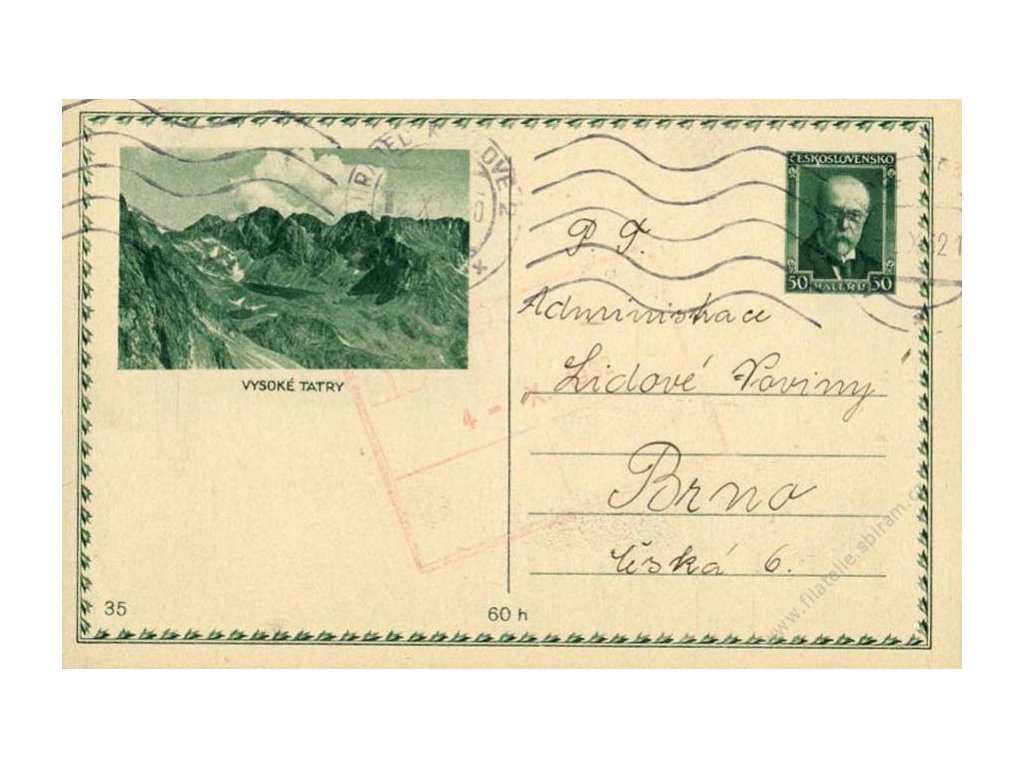 ČESKOSLOVENSKO
50 HALÉŘŮ 50
VYSOKÉ TATRY
P. T.
Administrace
„Lidové Noviny"
Brno
Česká 6.
4 - X.
35
60 h
www.filatelie.sbiram.cz